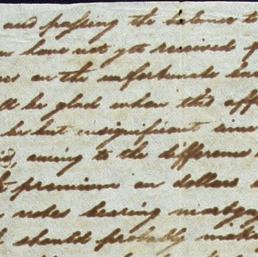 and passing the balance to
have not yet received
on the unfortunate
be glad when this aff
be but insignificant since
owing to the difference
premium on dollars
notes bearing mortga
should probably